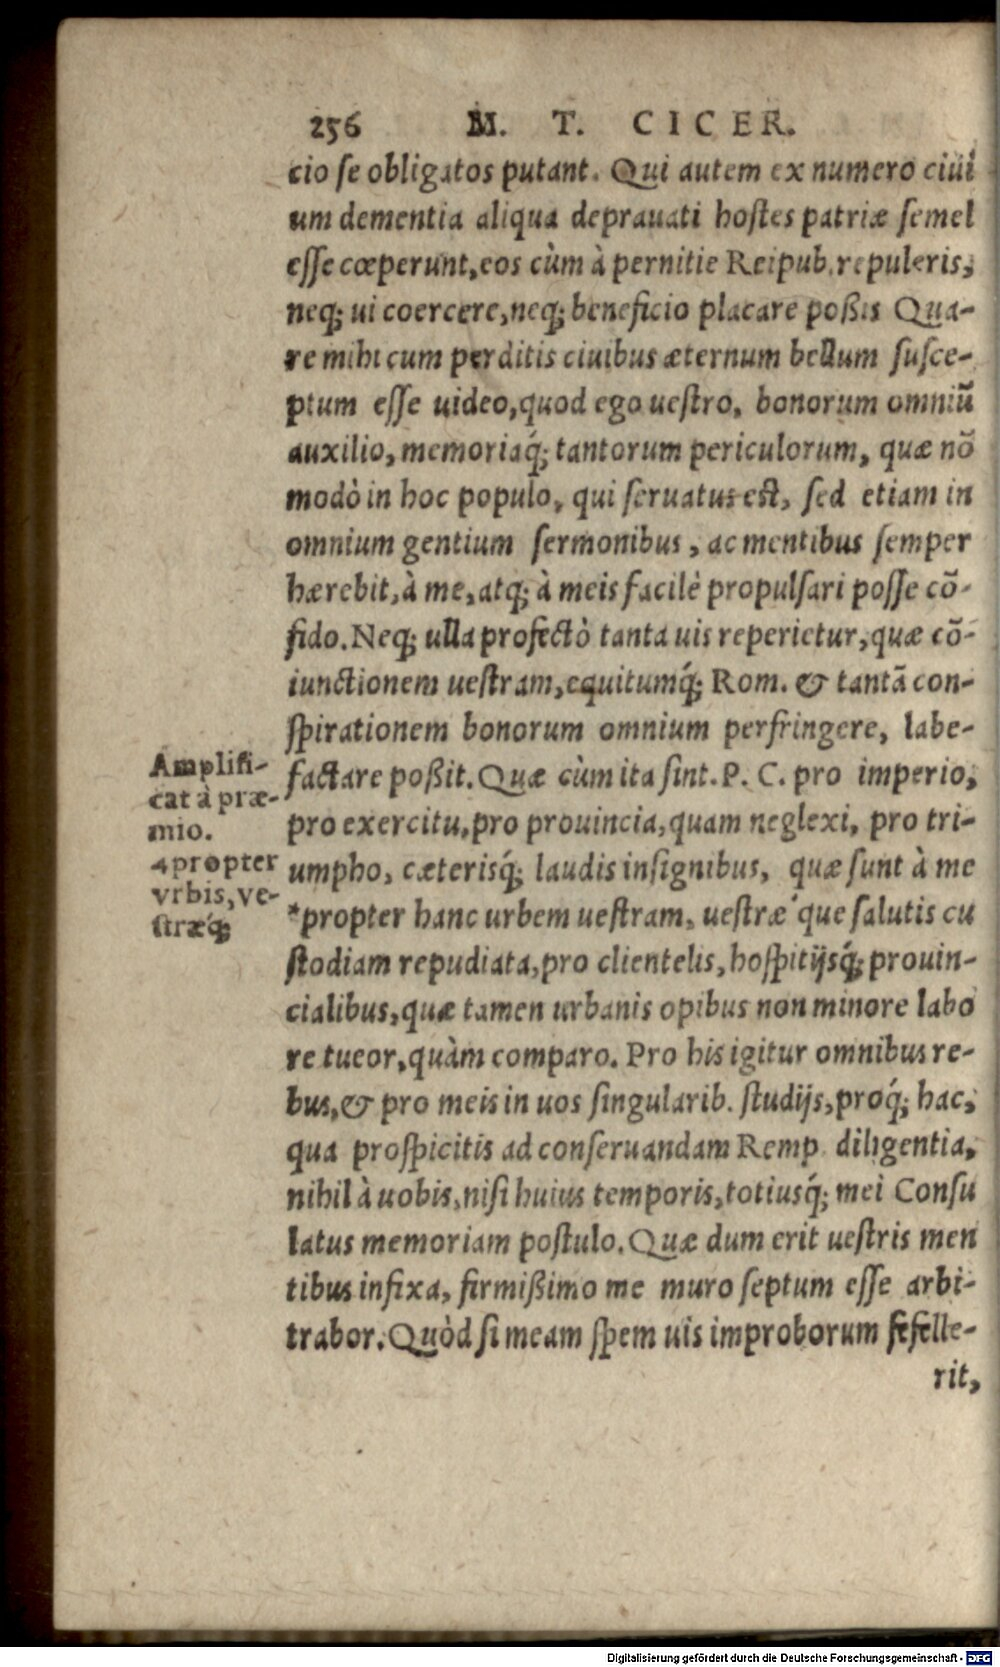 256 M. T. CICER.
cio se obligatos putant. Qui autem ex numero ciui
um dementia aliqua deprauati hostes patriæ semel
esse cœperunt, eos cùm à pernitie Reipub. repuleris,
neq; ui coercere, neq; beneficio placare poßis Qua-
re mihi cum perditis ciuibus æternum bellum susce-
ptum esse uideo, quod ego uestro, bonorum omniũ
auxilio, memoriaq́; tantorum periculorum, quæ nõ
modò in hoc populo, qui seruatus est, sed etiam in
omnium gentium sermonibus, ac mentibus semper
hærebit, à me, atq; à meis facilè propulsari posse cõ-
fido. Neq; ulla profectò tanta uis reperietur, quæ cõ-
iunctionem uestram, equitumq́; Rom. & tantã con-
spirationem bonorum omnium perfringere, labe-
factare poßit. Quæ cùm ita sint. P. C. pro imperio,
pro exercitu, pro prouincia, quam neglexi, pro tri-
umpho, cæterisq́; laudis insignibus, quæ sunt à me
*propter hanc urbem uestram, uestræ´que salutis cu
stodiam repudiata, pro clientelis, hospitijsq́; prouin-
cialibus, quæ tamen urbanis opibus non minore labo
re tueor, quàm comparo. Pro his igitur omnibus re-
bus, & pro meis in uos singularib. studijs, proq́; hac,
qua prospicitis ad conseruandam Remp. diligentia,
nihil à uobis, nisi huius temporis, totiusq́; mei Consu
latus memoriam postulo. Quæ dum erit uestris men
tibus infixa, firmißimo me muro septum esse arbi-
trabor. Quòd si meam spem uis improborum fefelle-
rit,
Amplifi-
cat à præ-
mio.
4propter
vrbis, ve-
stræq́;
Digitalisierung gefördert durch die Deutsche Forschungsgemeinschaft - DFG